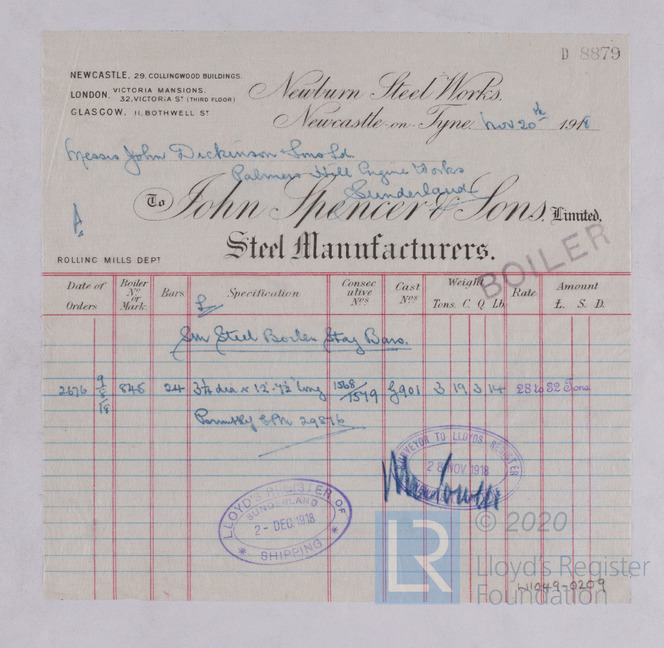 D 8879
NEWCASTLE, 29, COLLINGWOOD BUILDINGS.
LONDON, VICTORIA MANSIONS,
32, VICTORIA ST (THIRD FLOOR)
GLASGOW, 11, BOTHWELL ST
Newburn Steel Works,
Newcastle-on-Tyne, Nov 20th 1918
Messrs John Dickinson & Sons Ld
Palmers Hill Engine Works
Sunderland
To John Spencer & Sons, Limited,
Steel Manufacturers.
ROLLING MILLS DEPT
BOILER
Date of Orders Boiler No. or Mark. Bars Specification Consecutive Nos Cast Nos Weight Tons. C. Q Lb. Rate Amount £. S. D.
Sm Steel Boiler Stay Bars.
2676 9/8/18 848 24 dia x long 1568/1579 901 3 19 3 14 28 to 32 Tons
29876
SURVEYOR TO LLOYDS REGISTER
28 NOV 1918
LLOYD'S REGISTER OF
SUNDERLAND
2- DEC. 1918
SHIPPING
LR
© 2020
Lloyd's Register
Foundation
LH049-0209